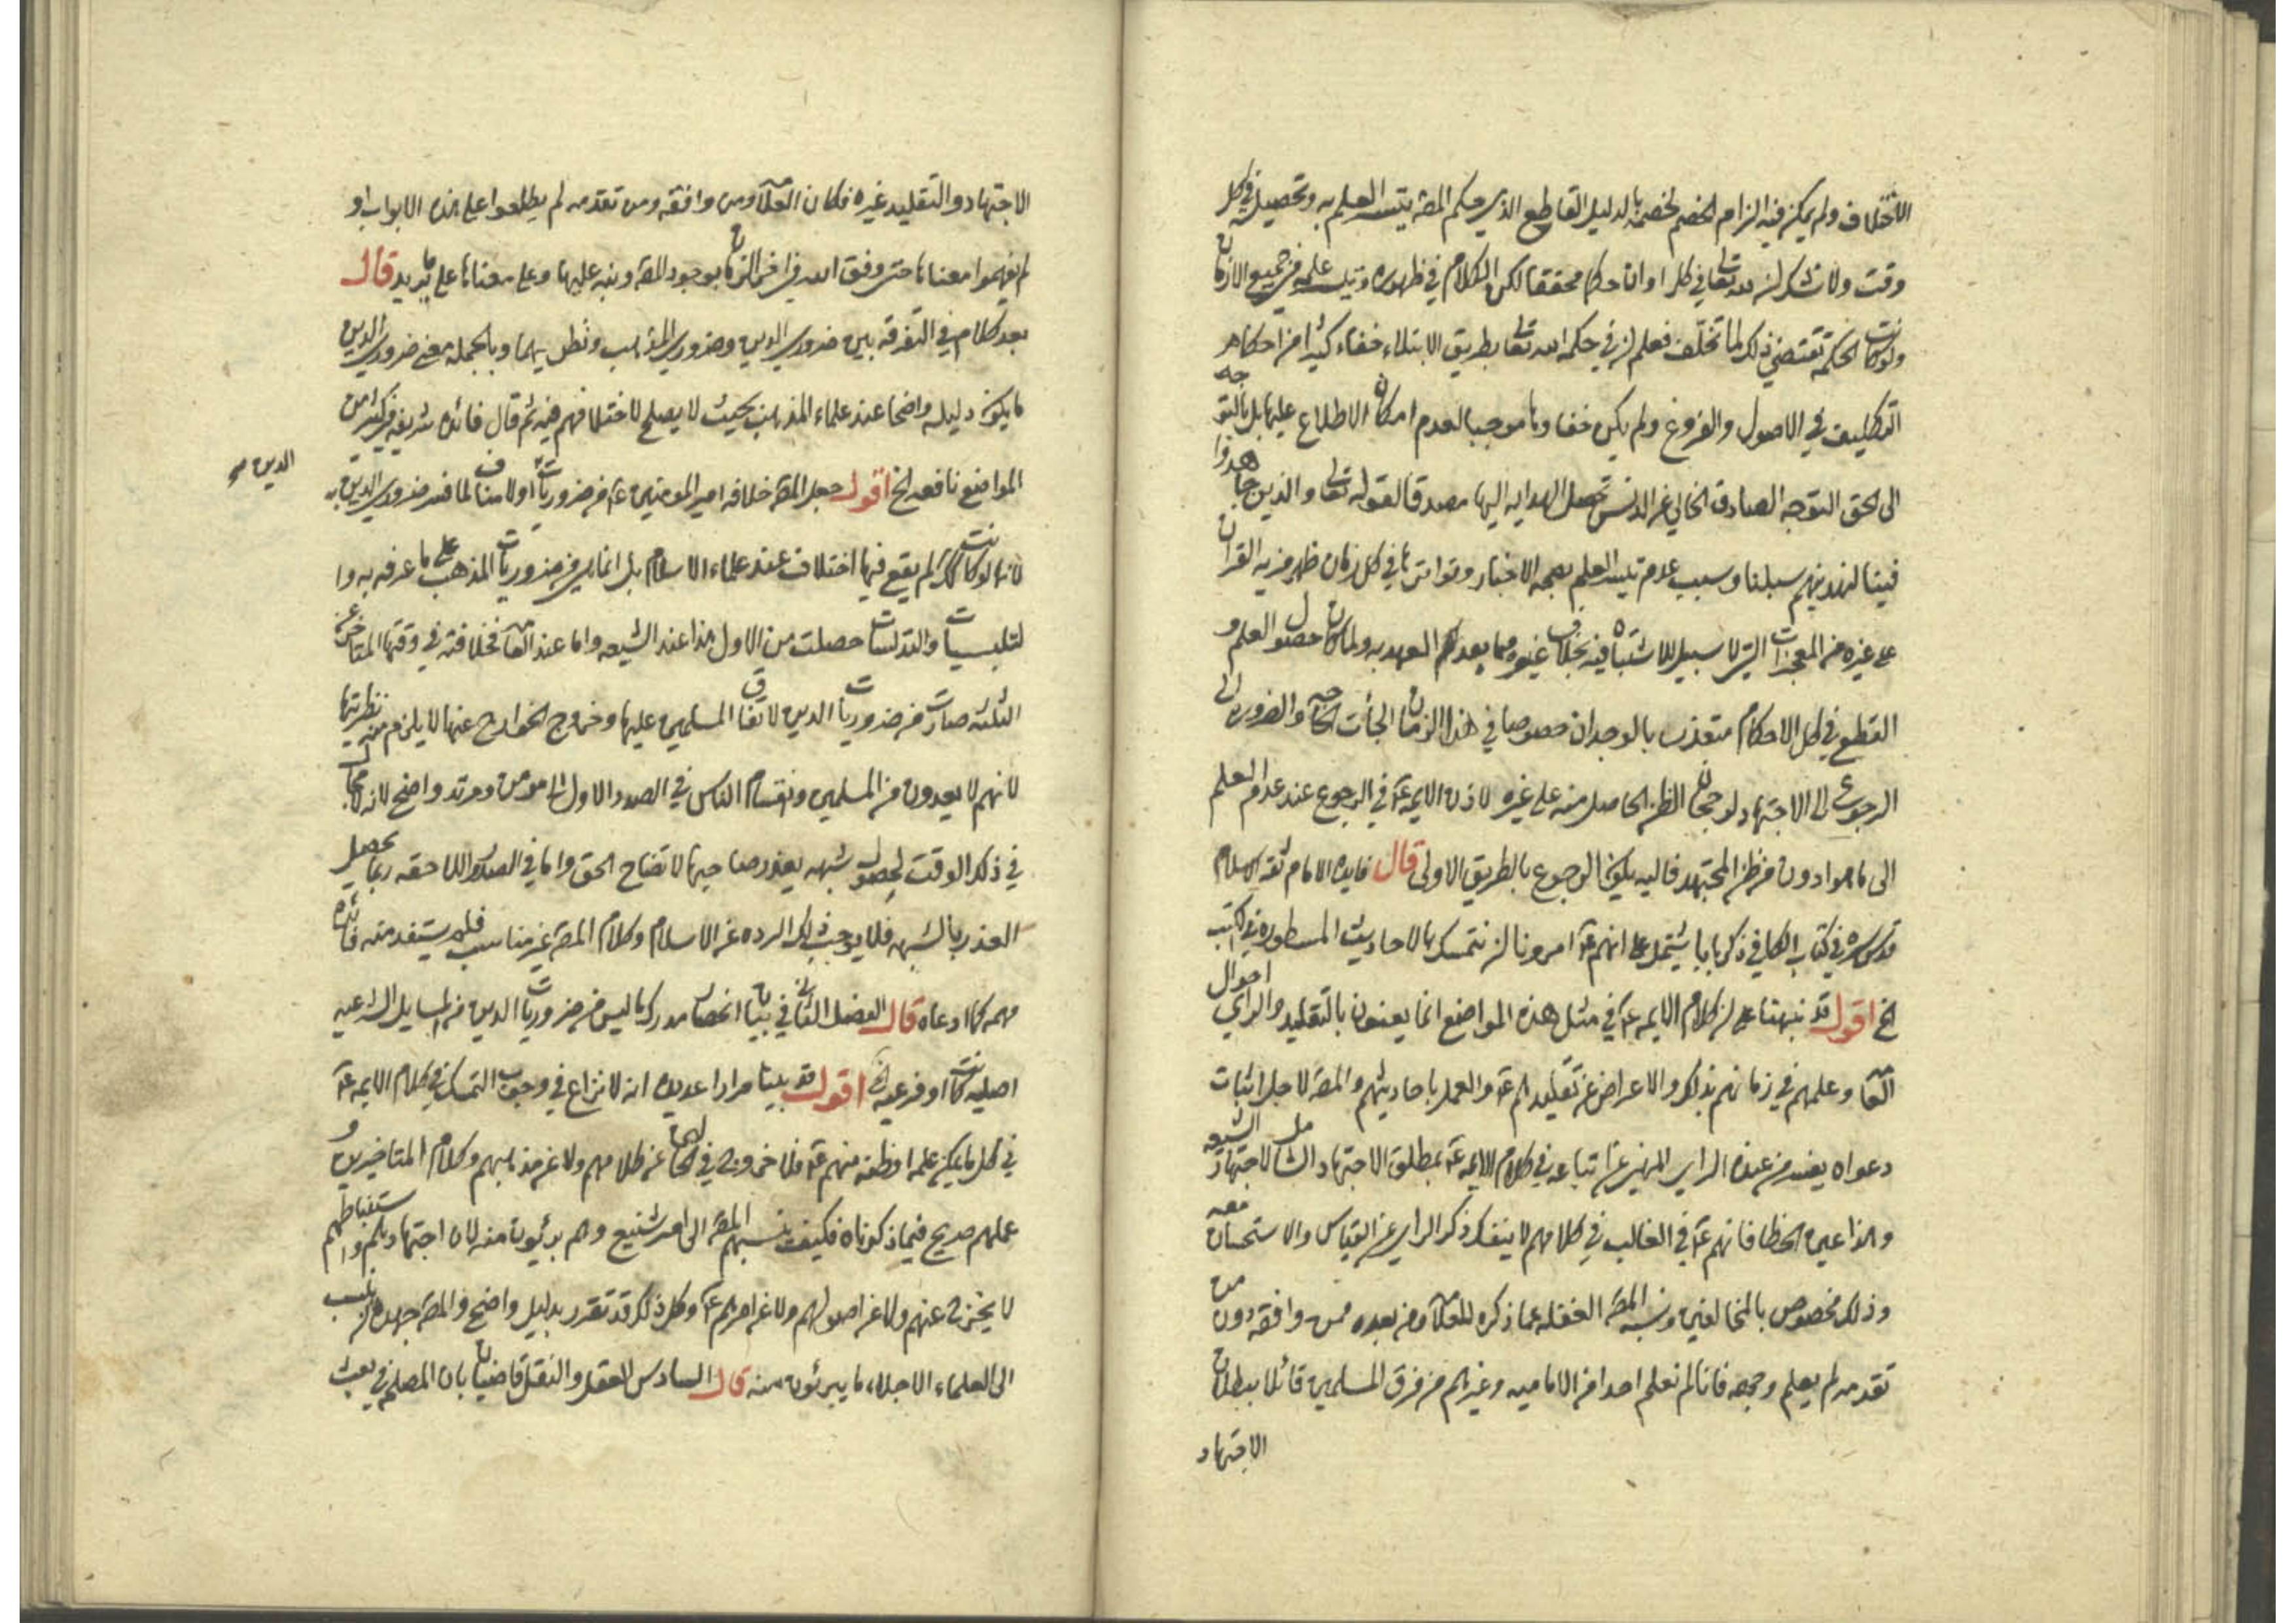 الاختلاف ولم يمكن فيه الزام الخصم لخصمه بالدليل القاطع الذي حكم المص بتيسر العلم به وتحصيله في كل
وقت ولا شك ان لله تعالى في كل اوان احكام محققة لكن الكلام في ظهوره وتيسر علمه في جميع الازمان
ولو كانت الحكمة تقتضي ذلك لما تخلف فعلم ان في حكمة الله تعالى بطريق الابتلاء خفاء كثير من احكام
التكليف في الاصول والفروع ولم يكن خفاؤها موجبا لعدم امكان الاطلاع عليها بل بالتوجه
الى الحق التوجه الصادق الخالي عن الدنس تحصل الهداية اليها مصدقا لقوله تعالى والذين جاهدوا
فينا لنهدينهم سبلنا وسبب عدم تيسر العلم بصحة الاخبار وتواترها في كل زمان ظهر مزية القرآن
على غيره من المعجزات التي لا سبيل للاشتباه فيه بخلاف غيره مما يبعد العهد به ولما كان حصول العلم و
القطع في كل الاحكام متعذر بالوجدان خصوصا في هذا الزمان الجأت الحاجة والضرورة الى
الرجوع الى الاجتهاد لرجحان الظن الحاصل منه على غيره لاذن الايمه ع في الرجوع عند عدم العلم
الى ما هو ادون من ظن المجتهد فاليه يكون الرجوع بالطريق الاولى قال فايدة الامام ثقة الاسلام
قدس سره في كتاب الكافي ذكر بابا يشتمل على انهم ع امرونا ان نتمسك بالاحاديث المسطورة في كتب
الخ اقول قد نبهنا على ان كلام الايمه ع في مثل هذه المواضع انما يعنون بالتقليد والراي احوال
العامه وعلمهم في زمانهم بذلك والاعراض عن تقليدهم ع والعمل باحاديثهم والمص لاجل اثبات
دعواه يفسد من عنده الراي المنهي عن اتباعه في كلام الايمه ع بمطلق الاجتهاد الشامل لاجتهاد الشيعه
وهذا عين الخطا فانهم ع في الغالب في كلامهم لا ينفك ذكر الراي عن القياس والاستحسان معه
وذلك مخصوص بالمخالفين ونسبه المص الغفلة عما ذكره للعلامه ومن بعده ممن وافقه دون من
تقدمه لم يعلم وجهه فانا لم نعلم احدا من الاماميه وغيرهم من فرق المسلمين قائلا ببطلان
الاجتهاد
الاجتهاد والتقليد غيره فكان العلامه ومن وافقه ومن تقدمه لم يطلعوا على هذه الابواب او
لم يفهموا معناها حتى وفق الله في اخر الزمان بوجود المص ونبه عليها وعلى معناها على ما يريد قال
بعد كلام في التفرقه بين ضروري الدين وضروري المذهب ونظريهما وبالجملة معنى ضروري الدين
ما يكون دليله واضحا عند علماء المذهب بحيث لا يصلح لاختلافهم فيه ثم قال فائدة شريفه في كثير من
المواضع نافعه الخ اقول جعل المص خلافة امير المؤمنين ع من ضروريات اولا مناف لما فسر ضروري الدين به
الدين صح
لانها لو كانت كك لم يقع فيها اختلاف عند علماء الاسلام بل انما هي من ضروريات المذهب على ما عرفه به وا
لتلبيسات والتدليسات حصلت من الاول هذا عند الشيعه واما عند العامه فخلافته في وقتها المتاخر عن
الثلثة صارت من ضروريات الدين لاتفاق المسلمين عليها وخروج الخوارج عنها لا يلزم منه نظريتها
لانهم لا يعدون من المسلمين وانقسام الناس في الصدر الاول الى مومن ومرتد واضح لانه لا مجال
في ذلك الوقت لحصول شبهه يعذر صاحبها لاتضاح الحق واما في الصدور اللاحقه ربما يحصل
العذر بالشبهه فلا يوجب ذلك الرده عن الاسلام وكلام المص غير مناسب فلم يستفد منه فائده
مهمه كما ادعاه قال الفصل الثاني في بيان انحصار مدرك ما ليس من ضروريات الدين من المسايل الشرعيه
اصليه كانت او فرعيه الخ اقول قد بينا مرارا عديده انه لا نزاع في وجوب التمسك في كلام الايمه ع
في كل ما يمكن علمه او ظنه منهم ع فلا خروج في الحالين عن كلامهم ولا عن مذهبهم وكلام المتاخرين و
عملهم صريح فيما ذكرناه فكيف ينسبهم المص الى امر شنيع وهم بريئون منه لان اجتهادهم واستنباطهم
لا يخرج عنهم ولا عن اصولهم ولا عن امرهم ع وكل ذلك قد تقرر بدليل واضح والمص جهده ان ينسب
الى العلماء الاجلاء ما يبرئون منه قال السادس العقل والنقل قاضيان بان المصلحة في بعث